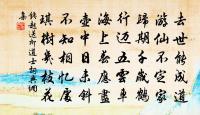 去世能成道
遊仙不定家
歸期千歲鶴
行邁五雲車
海上春應盡
壺中日未斜
不知相憶處
琪樹幾枝花
錢起送柳道士
集